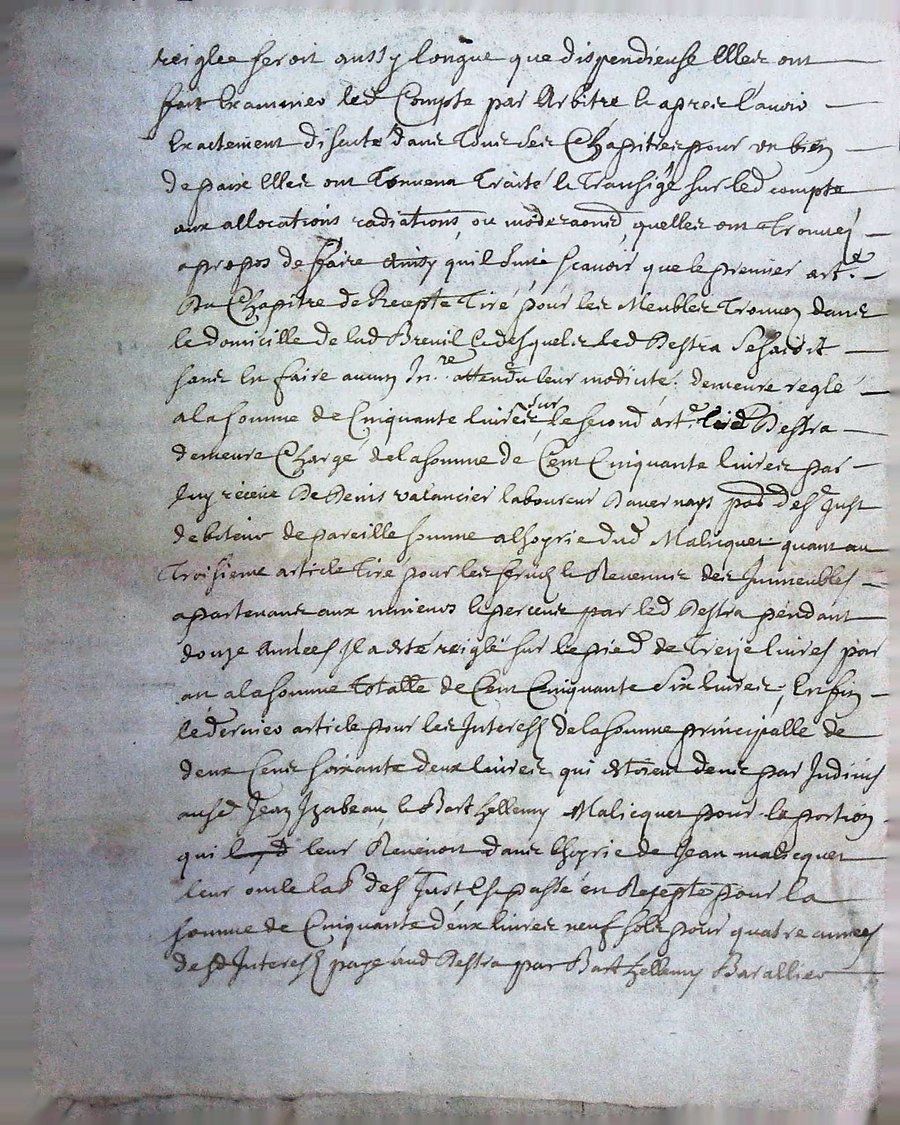 reiglee seroit aussy longue que dispendieuse Elles ont
fait Examiner led Compte par Arbitre & apres l'avoir
Exactement discuté dans Tous ses Chapitres pour un bien
de paix Elles ont Convenu Traité & Transigé sur led compte
aux allocations radiations ou moderaons quelles ont Trouvé
apropos de faire ainsy quil suit scavoir que le premier art.e
Du Chapitre de Recepte Tiré pour les Meubles Trouvez dans
le domicille de lad Breuil & desquels led Restra se saisit
sans En faire aucun In.re attendu leur modicité demeure reglé
ala somme de Cinquante livres sur le second art.e led Restra
demeure Chargé dela somme de Cent Cinquante livres par
luy receue De Denis valancier laboureur Davernays par des Just
debiteur de pareille somme alhoyrie dud Malicquet quant au
Troisieme article Tire pour les fruits & Revenus des Immeubles
apartenans aux mineurs & perceus par led Restra pendant
douze Années Il a esté reiglé sur le pied de Treize livres par
an ala somme totalle de Cent Cinquante Six livres ; Enfin
le dernier article pour les Interests de la somme principalle de
deux Cens soixante deux livres qui etoient deus par Indivis
ausd Jean Izabeau & Barthellemy Malicquet pour la portion
qui leur Revenoit dans lhoyrie de Jean malicquet
leur oncle Est passé en Recepte pour la
somme de Cinquante deux livres neuf sols pour quatre années
desd Interests payé aud Restra par Barthellemy Barallier